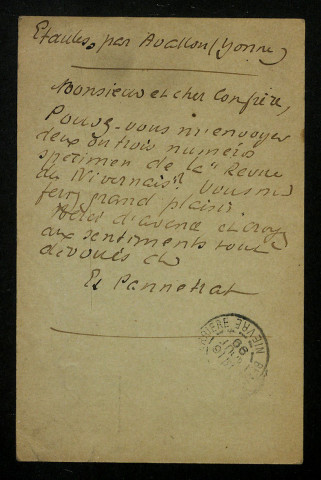 Etaules, par Avallon (Yonne)
Monsieur et cher Confrère,
Pouvez-vous m'envoyer
deux ou trois numéros
spécimen de la "Revue
du Nivernais"? Vous me
ferez grand plaisir.
Merci d'avance et croyez
aux sentiments tout
dévoués de
E. Pannetrat
NIEVRE